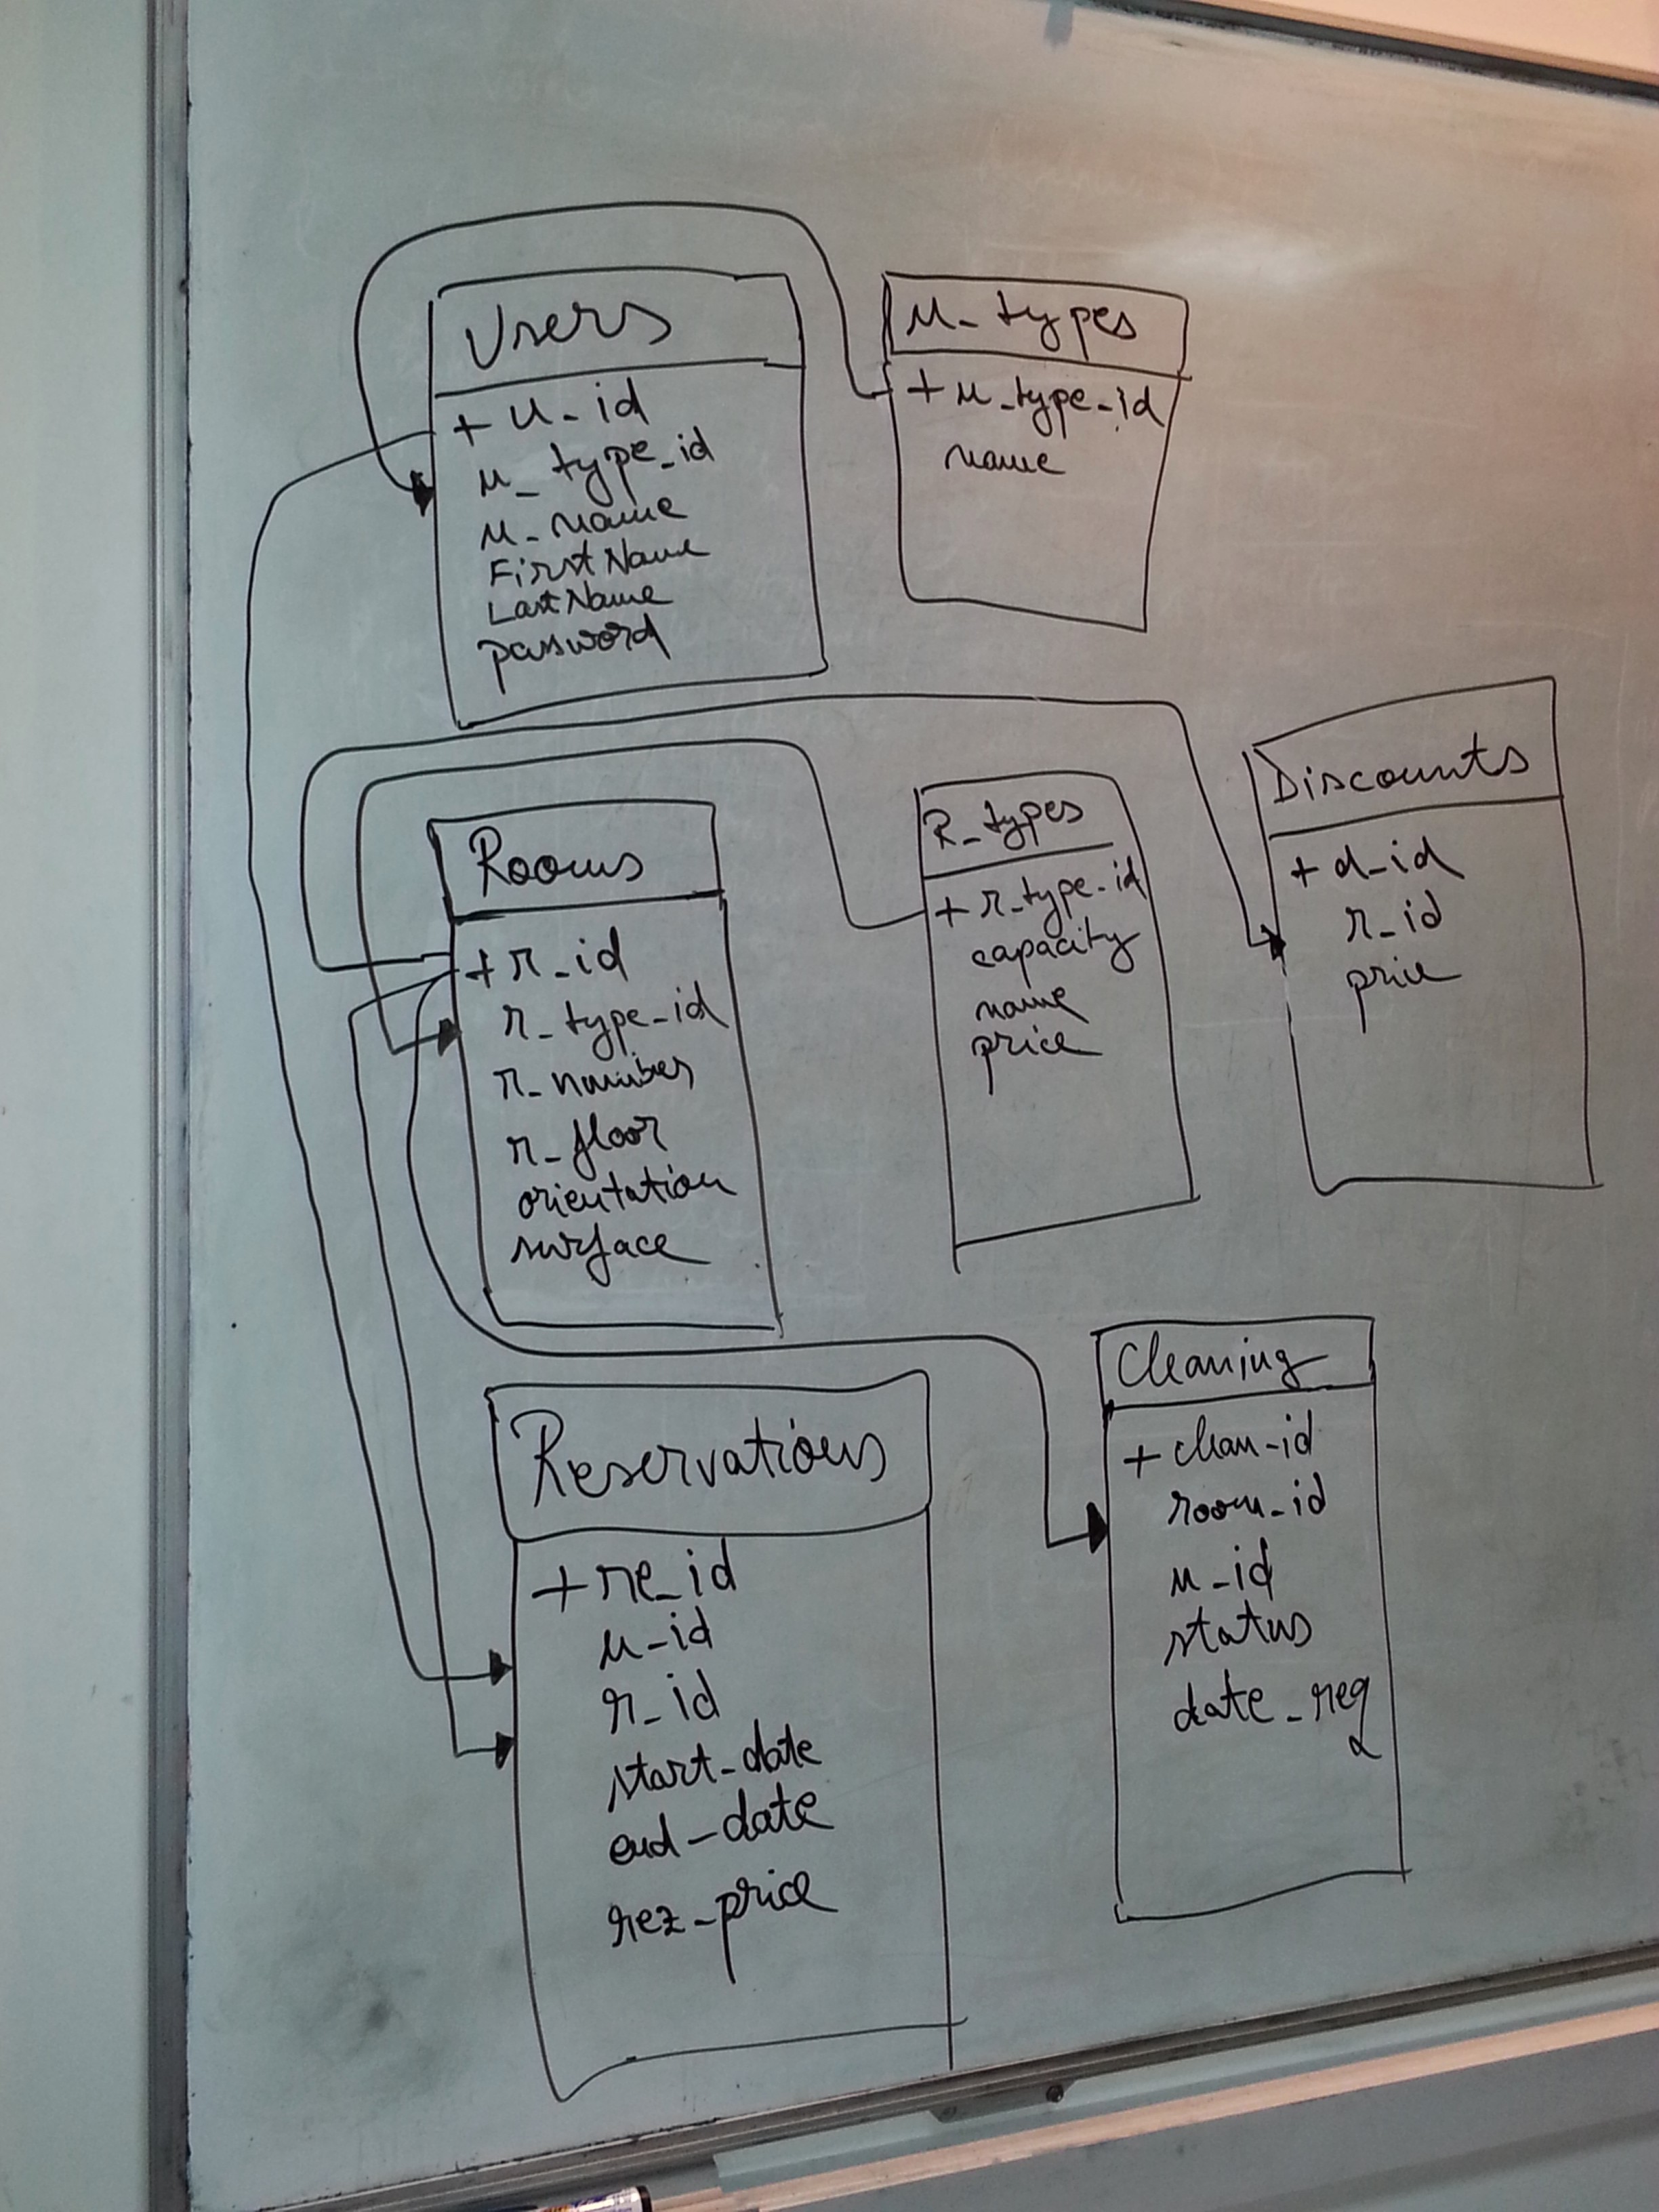 Users
+ u_id
u_type_id
u_name
FirstName
LastName
password
u_types
+ u_type_id
name
Rooms
+ r_id
r_type_id
r_number
r_floor
orientation
surface
R_types
+ r_type_id
capacity
name
price
Discounts
+ d_id
r_id
price
Reservations
+ re_id
u_id
r_id
start_date
end_date
rez_price
Cleaning
+ clean_id
room_id
u_id
status
date_req